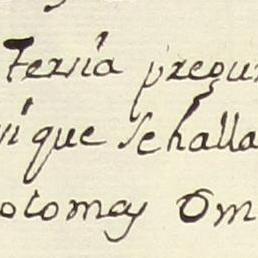 Tersia pregun
ni que se halla
olomay Om